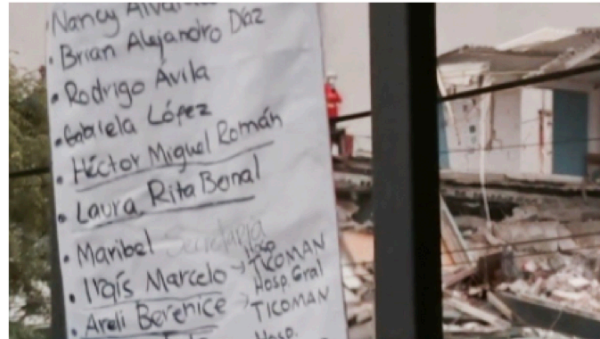 Nancy
• Brian Alejandro Díaz
• Rodrigo Ávila
• Gabriela López
• Héctor Miguel Román
• Laura Rita Bonal
• Maribel Secretaria
• Irais Marcelo → Hosp TICOMAN
• Areli Berenice → Hosp. Gral
TICOMAN
Hosp.